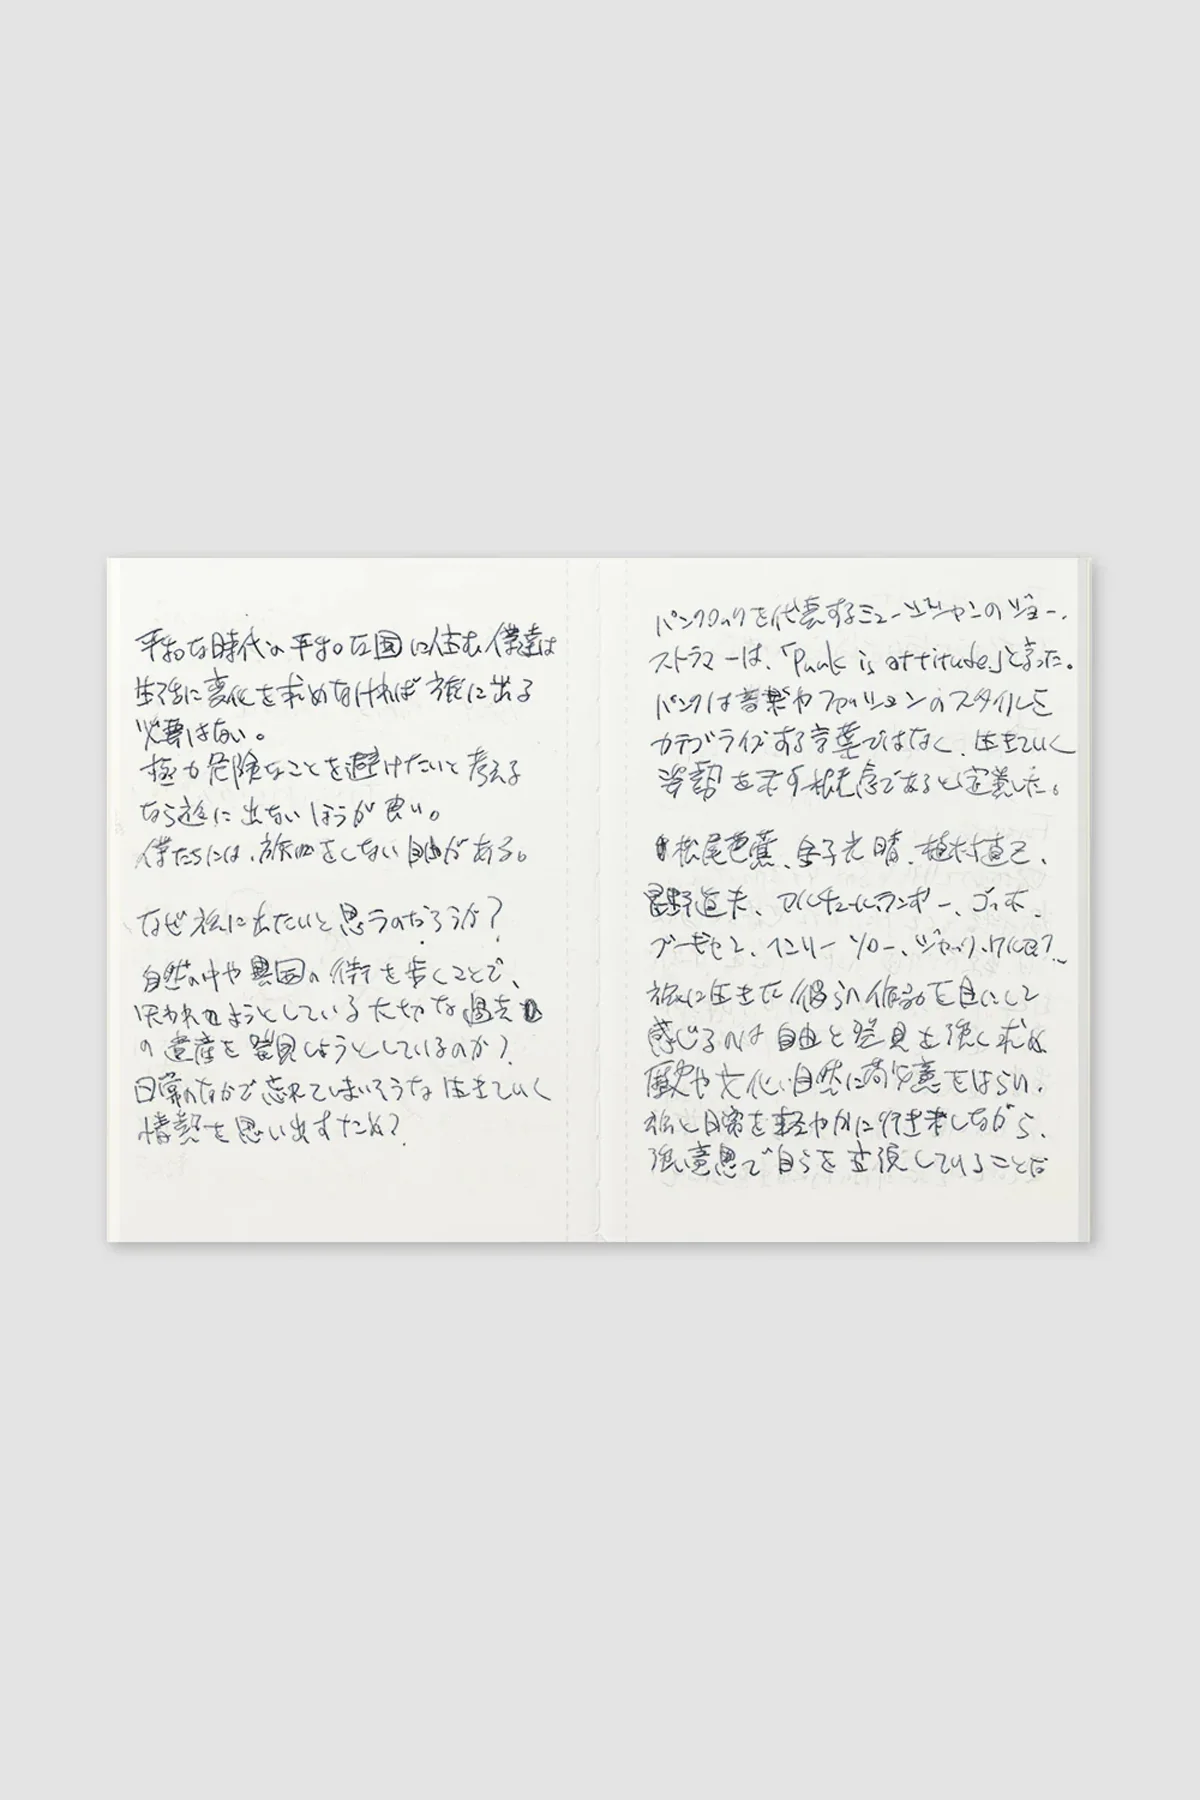 平和な時代の平和な国に住む僕達は
生活に変化を求めなければ旅に出る
必要はない。
極力危険なことを避けたいと考える
なら旅に出ないほうが良い。
僕たちには、旅をしない自由がある。
なぜ旅に出たいと思うのだろうか?
自然の中や異国の街を歩くことで、
失われようとしている大切な過去
の遺産を発見しようとしているのか?
日常のなかで忘れてしまいそうな生きていく
情熱を思い出すため?
パンクロックを代表するミュージシャンのジョー・
ストラマーは、「Punk is attitude」と言った。
パンクは音楽やファッションのスタイルを
カテゴライズする言葉ではなく、生きていく
姿勢を示す概念であると定義した。
松尾芭蕉、金子光晴、植村直己、
星野道夫、アルチュール・ランボー、ゴッホ、
ゴーギャン、ヘンリー・ソロー、ジャック・
旅に生きた彼らの作品を目にして
感じるのは自由と発見を強く求め
歴史や文化、自然に注意をはらい、
旅と日常を軽やかに行き来しながら、
強い意思で自らを主張していることだ